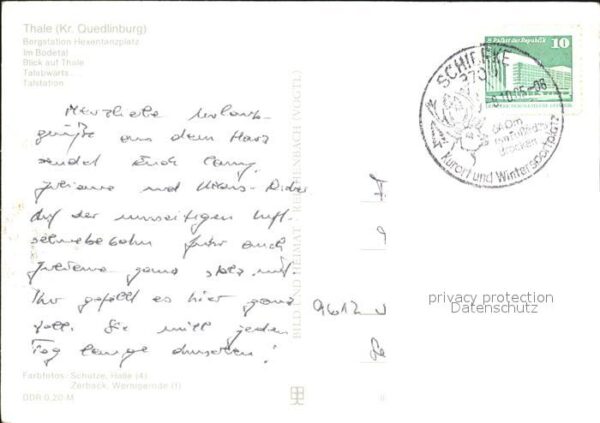 Thale (Kr. Quedlinburg)
Bergstation Hexentanzplatz
Im Bodetal
Blick auf Thale
Talabwärts
Talstation
Herzliche Urlaubs-
grüße aus dem Harz
sendet Euch
und Klaus-Dieter
Auf der umseitigen Luft-
schwebebahn fuhr auch
ganz stolz mit
Ihr gefällt es hier ganz
toll. Sie will jeden
Tag lange
Farbfotos: Schütze, Halle (4)
Zerback, Wernigerode (1)
DDR 0,20 M
BILD UND HEIMAT REICHENBACH (VOGTL)
Palast der Republik
10
SCHIERKE
3701
Kurort und Wintersportplatz
9612
privacy protection
Datenschutz